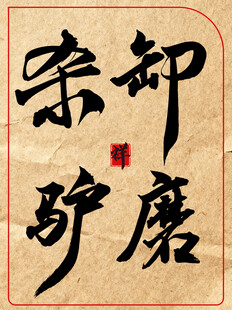 卸磨
杀驴
祥